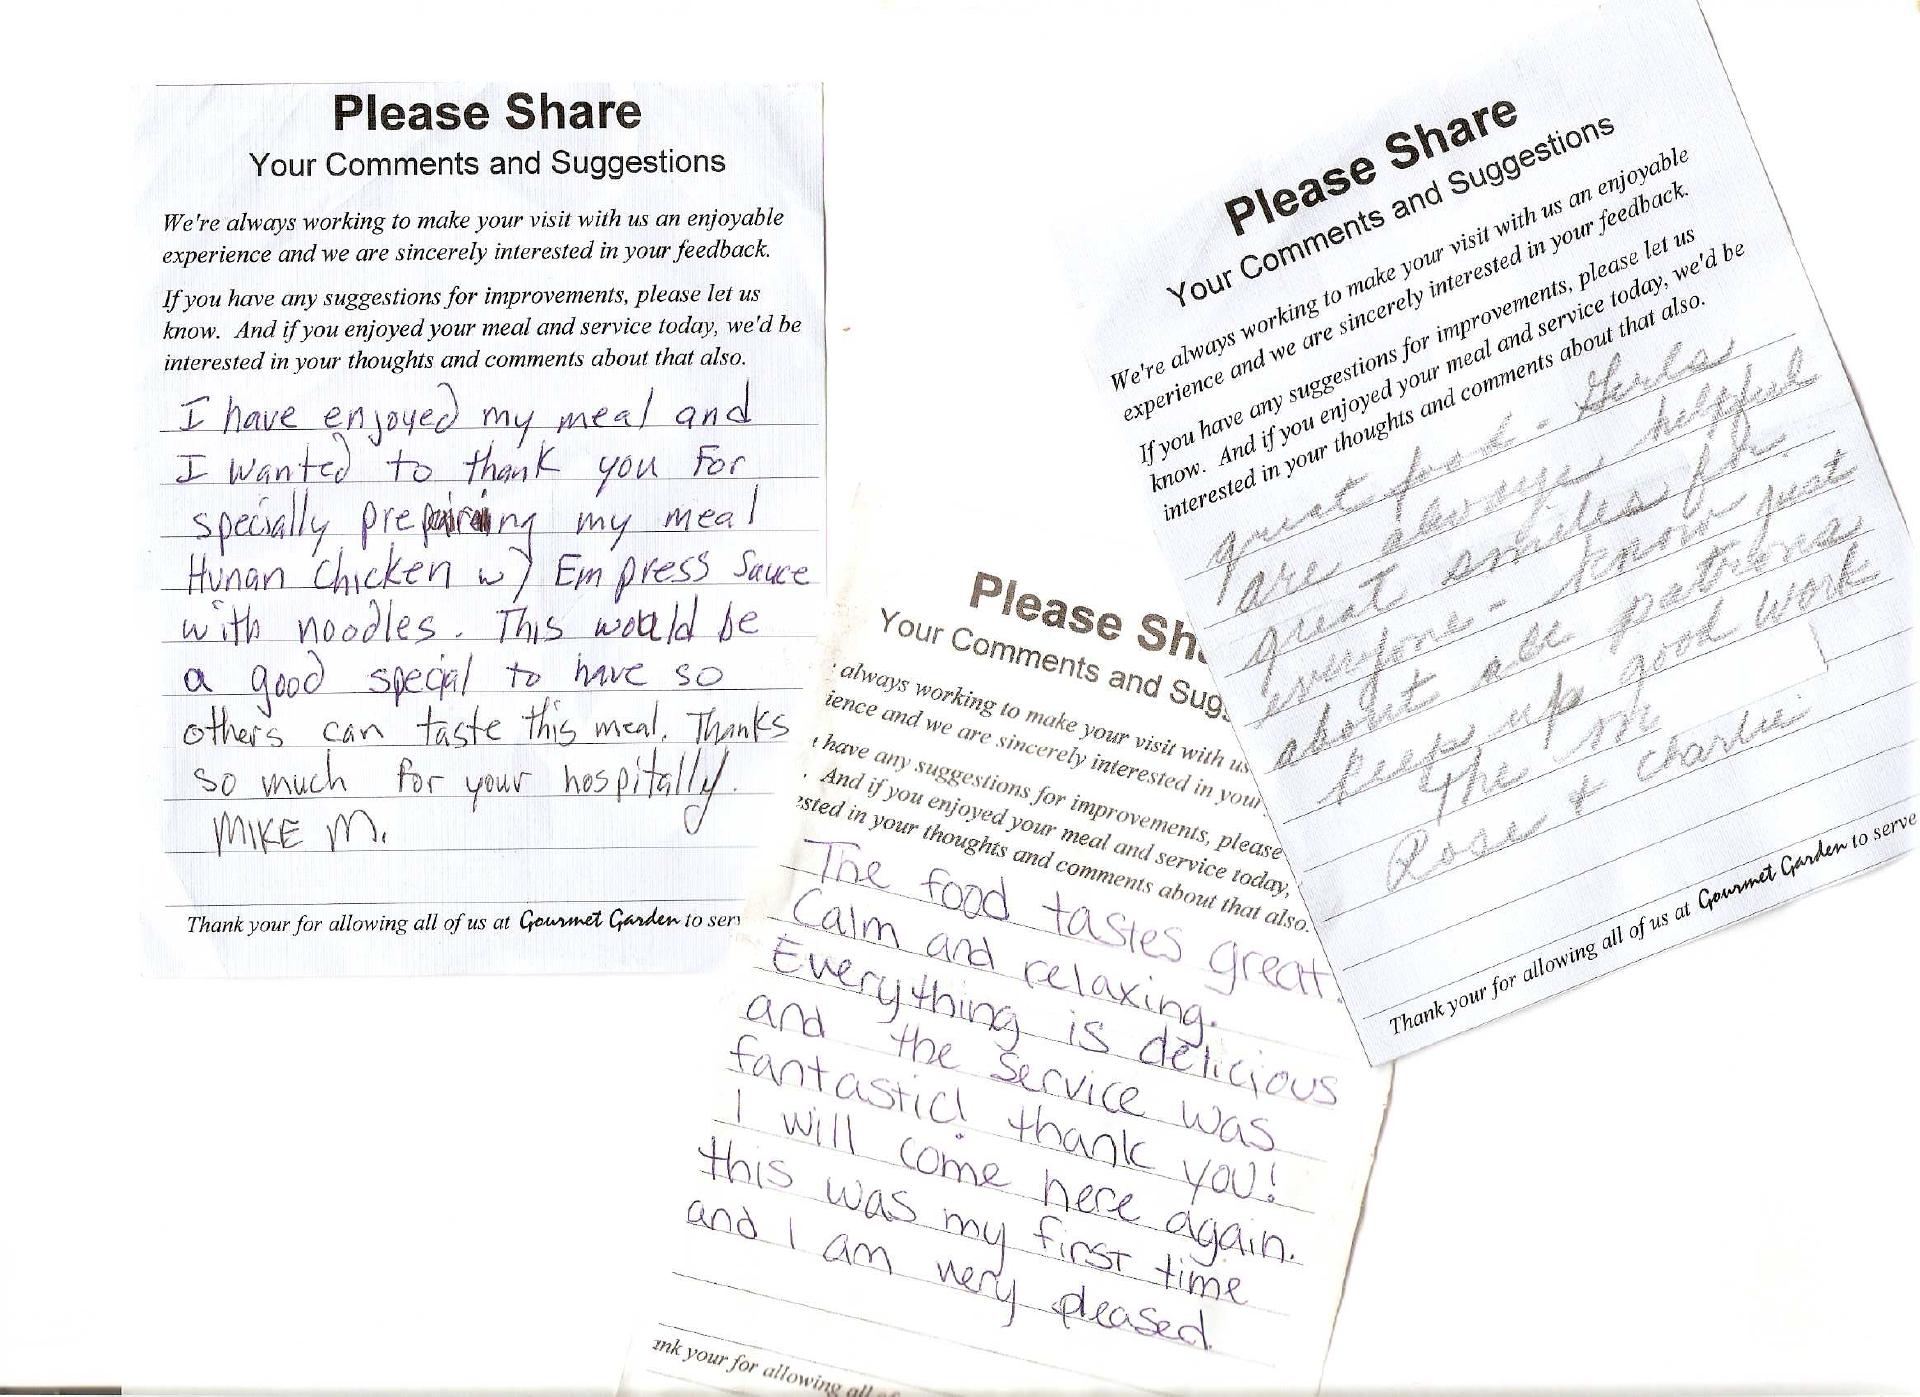 Please Share
Your Comments and Suggestions
We're always working to make your visit with us an enjoyable
experience and we are sincerely interested in your feedback.
If you have any suggestions for improvements, please let us
know. And if you enjoyed your meal and service today, we'd be
interested in your thoughts and comments about that also.
I have enjoyed my meal and
I wanted to thank you for
specially preparing my meal
Hunan Chicken w/ Empress Sauce
with noodles. This would be
a good special to have so
others can taste this meal. Thanks
so much for your hospitally.
MIKE M.
Thank your for allowing all of us at Gourmet Garden to serv
Please Sha
Your Comments and Sugg
always working to make your visit with us
ience and we are sincerely interested in your
have any suggestions for improvements, please
. And if you enjoyed your meal and service today,
ested in your thoughts and comments about that also.
The food tastes great.
Calm and relaxing.
Everything is delicious
and the service was
fantastic! thank you!
I will come here again.
this was my first time
and I am very pleased.
ank your for allowing all of
Please Share
Your Comments and Suggestions
We're always working to make your visit with us an enjoyable
experience and we are sincerely interested in your feedback.
If you have any suggestions for improvements, please let us
know. And if you enjoyed your meal and service today, we'd be
interested in your thoughts and comments about that also.
great food - Girls
are always helpful
great smiles for
everyone - know just
about all patrons
keep up good work
The M
Rose + Charlie
Thank your for allowing all of us at Gourmet Garden to serve